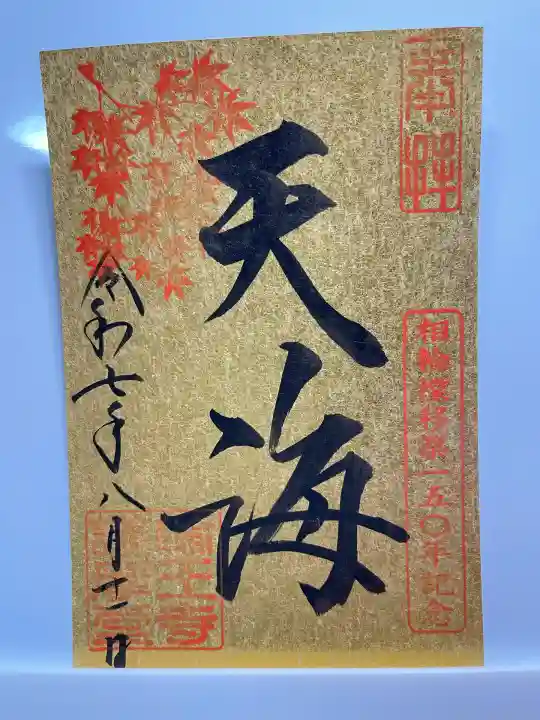 相輪橖移築一五〇年記念
天海
令和七年八月十一日